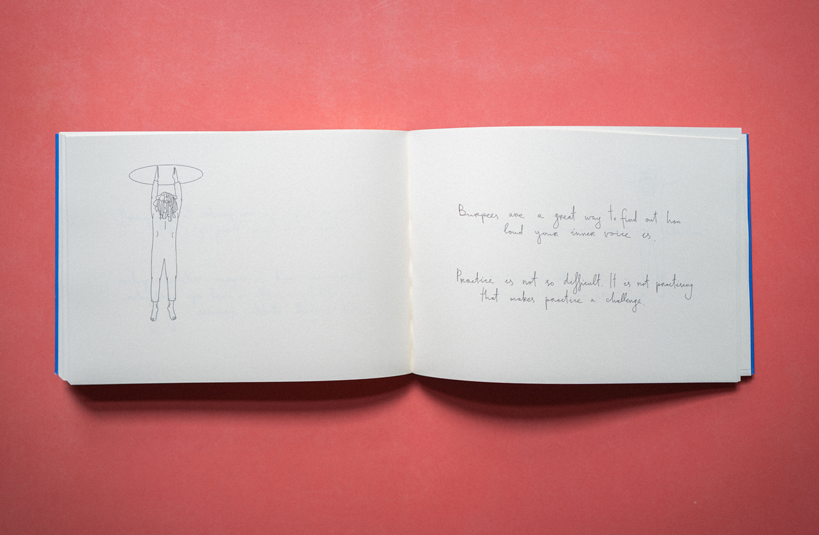 Burpees are a great way to find out how
loud your inner voice is.
Practice is not so difficult. It is not practising
that makes practice a challenge.